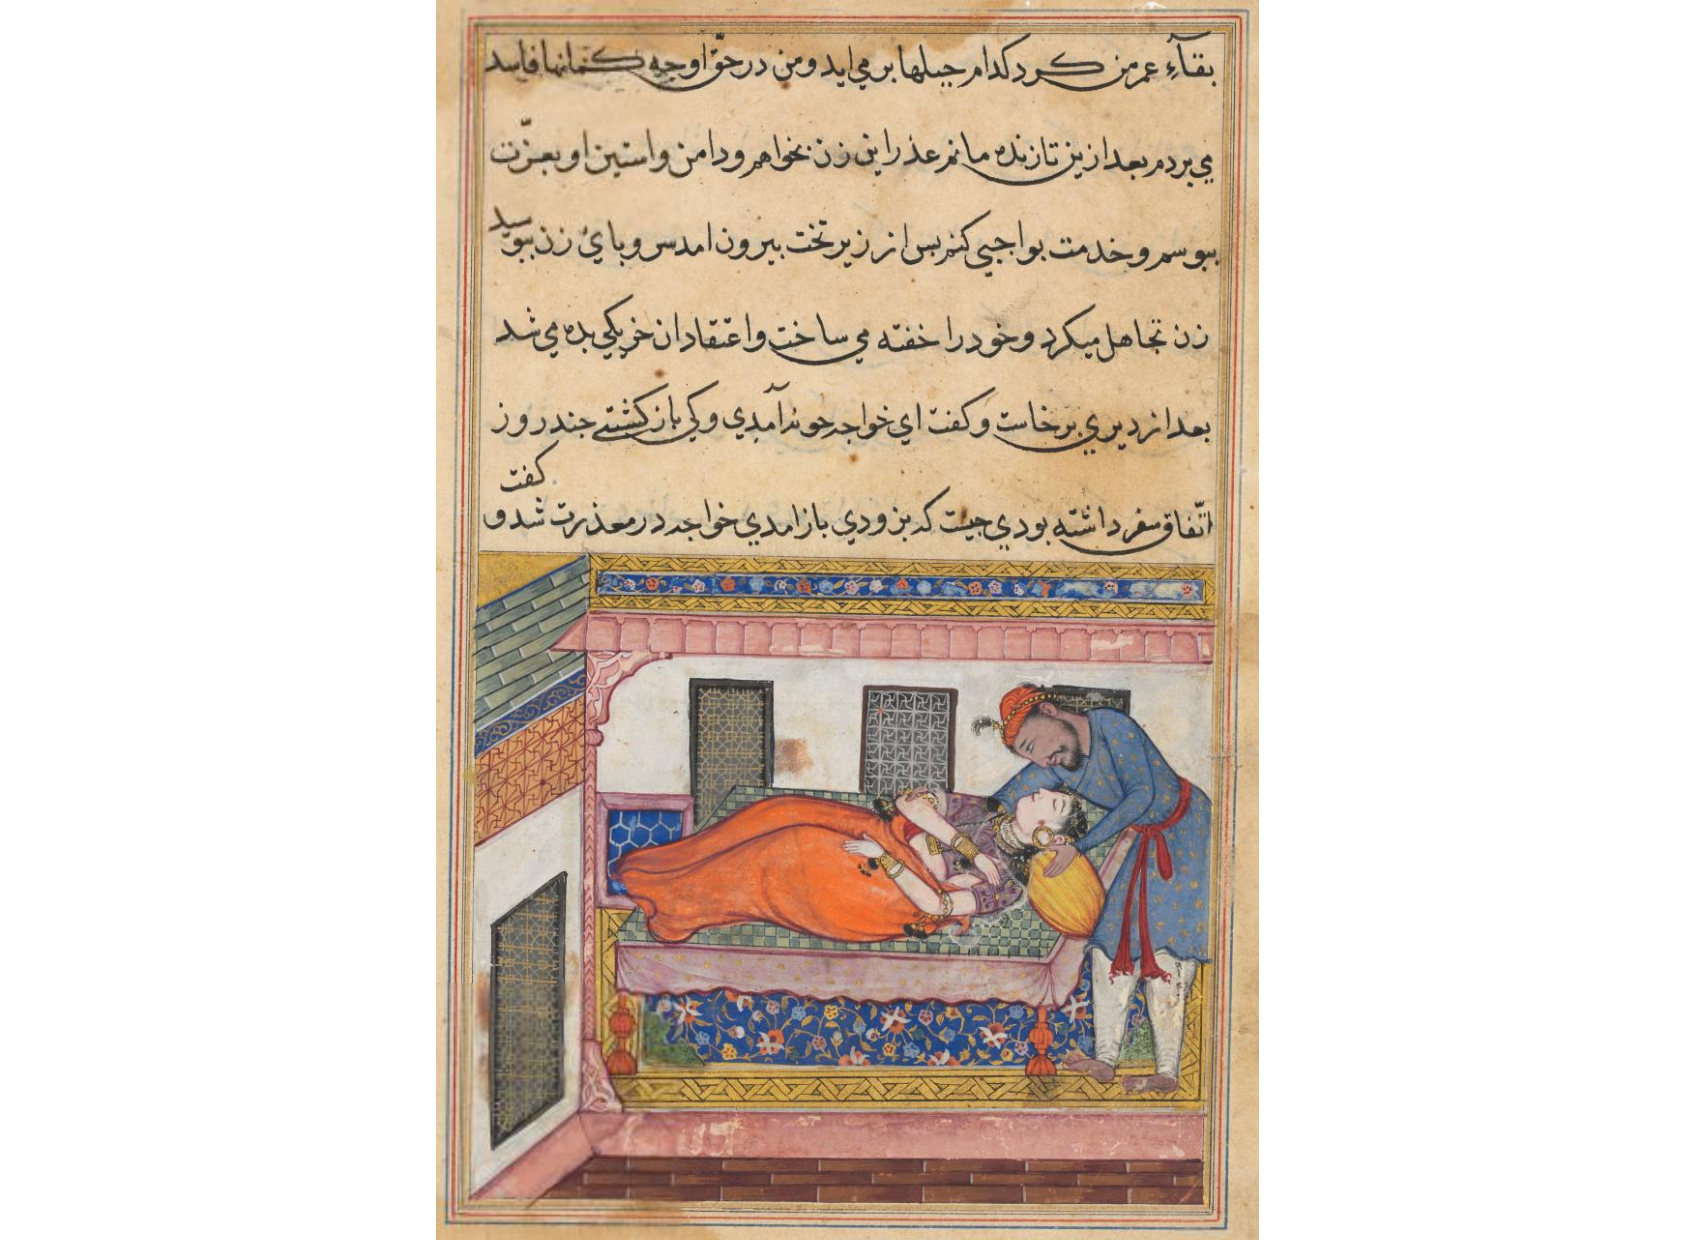 بقآءِ عمر من کرد کدام حیلها بر می اید و من در حقّ او چه کمانها فاسد
می بردم بعد ازین تا زنده مانم عذر این زن بخواهم و دامن و استین او بعزّت
ببوسم و خدمت بواجبی کنم بس از زیر تخت بیرون امد سر و بای زن ببوسید
زن تجاهل میکرد و خود را خفته می ساخت و اعتقاد ان خر یکی بده می شد
بعد از دیری برخاست و کفت ای خواجه جون آمدی و کی باز کشتی جند روز
اتّفاق سفر داشته بودی جیست که بزودی باز امدی خواجه در معذرت شد و کفت